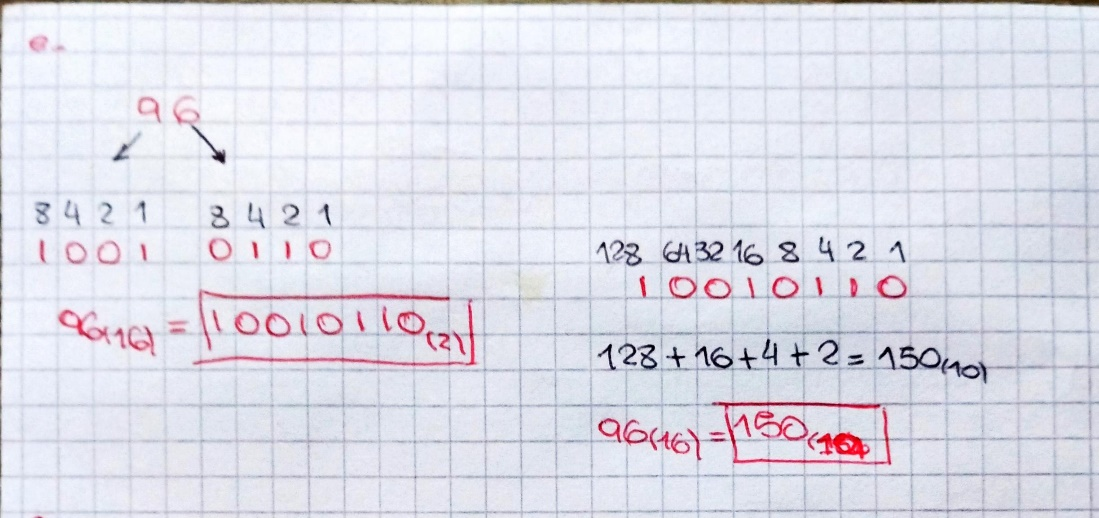 e.
96
8 4 2 1 8 4 2 1
1 0 0 1 0 1 1 0
96(16) = 10010110(2)
128 64 32 16 8 4 2 1
1 0 0 1 0 1 1 0
128 + 16 + 4 + 2 = 150(10)
96(16) = 150